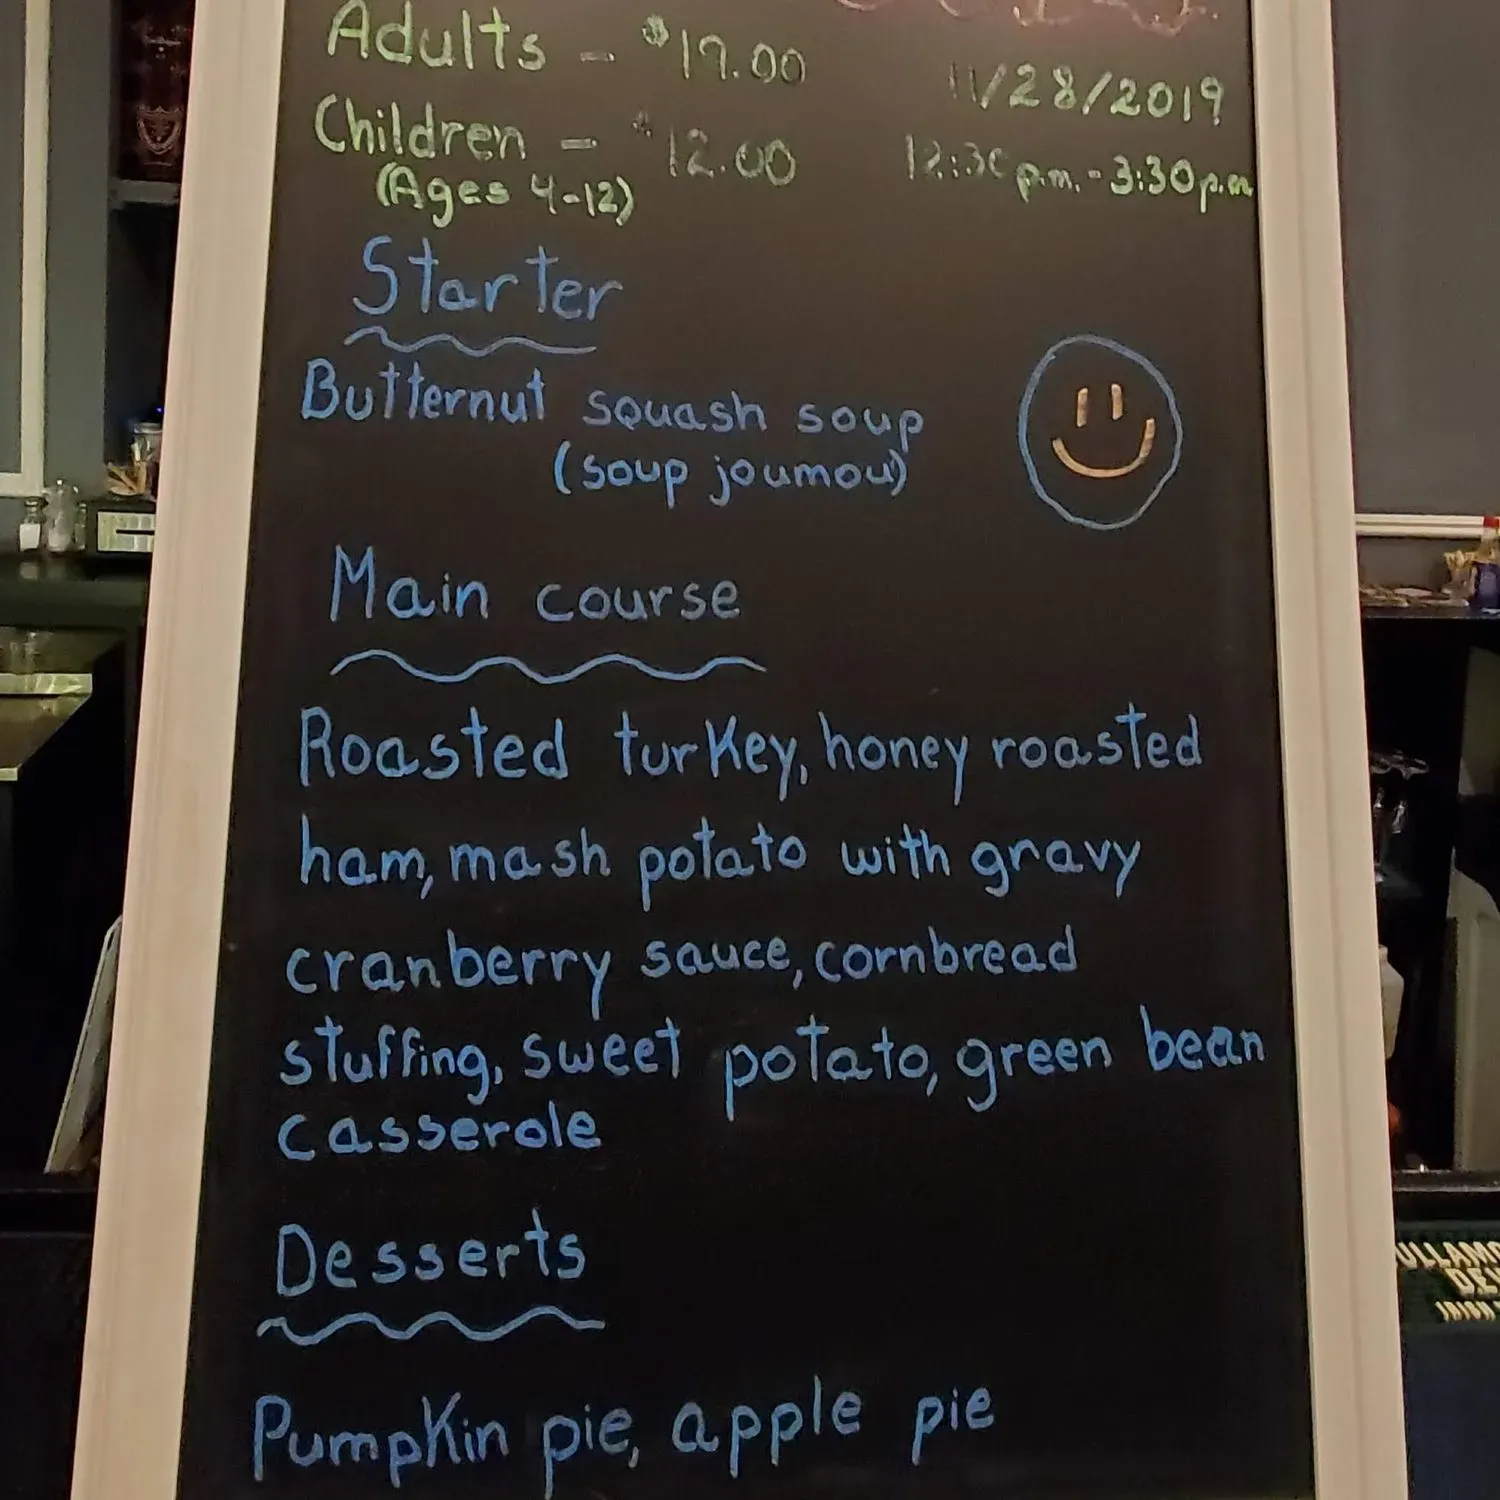 Adults - $17.00
11/28/2019
Children - $12.00
12:30 p.m. - 3:30 p.m
(Ages 4-12)
Starter
Butternut squash soup
(soup joumou)
Main course
Roasted turkey, honey roasted
ham, mash potato with gravy
cranberry sauce, cornbread
stuffing, sweet potato, green bean
casserole
Desserts
Pumpkin pie, apple pie